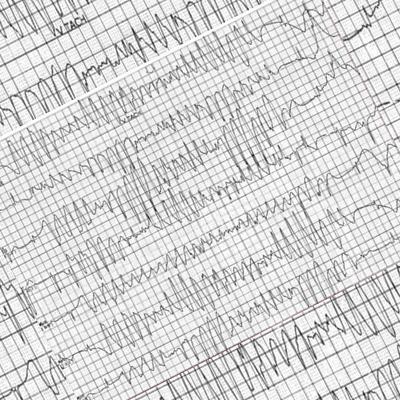 V.TACH
V.TACH